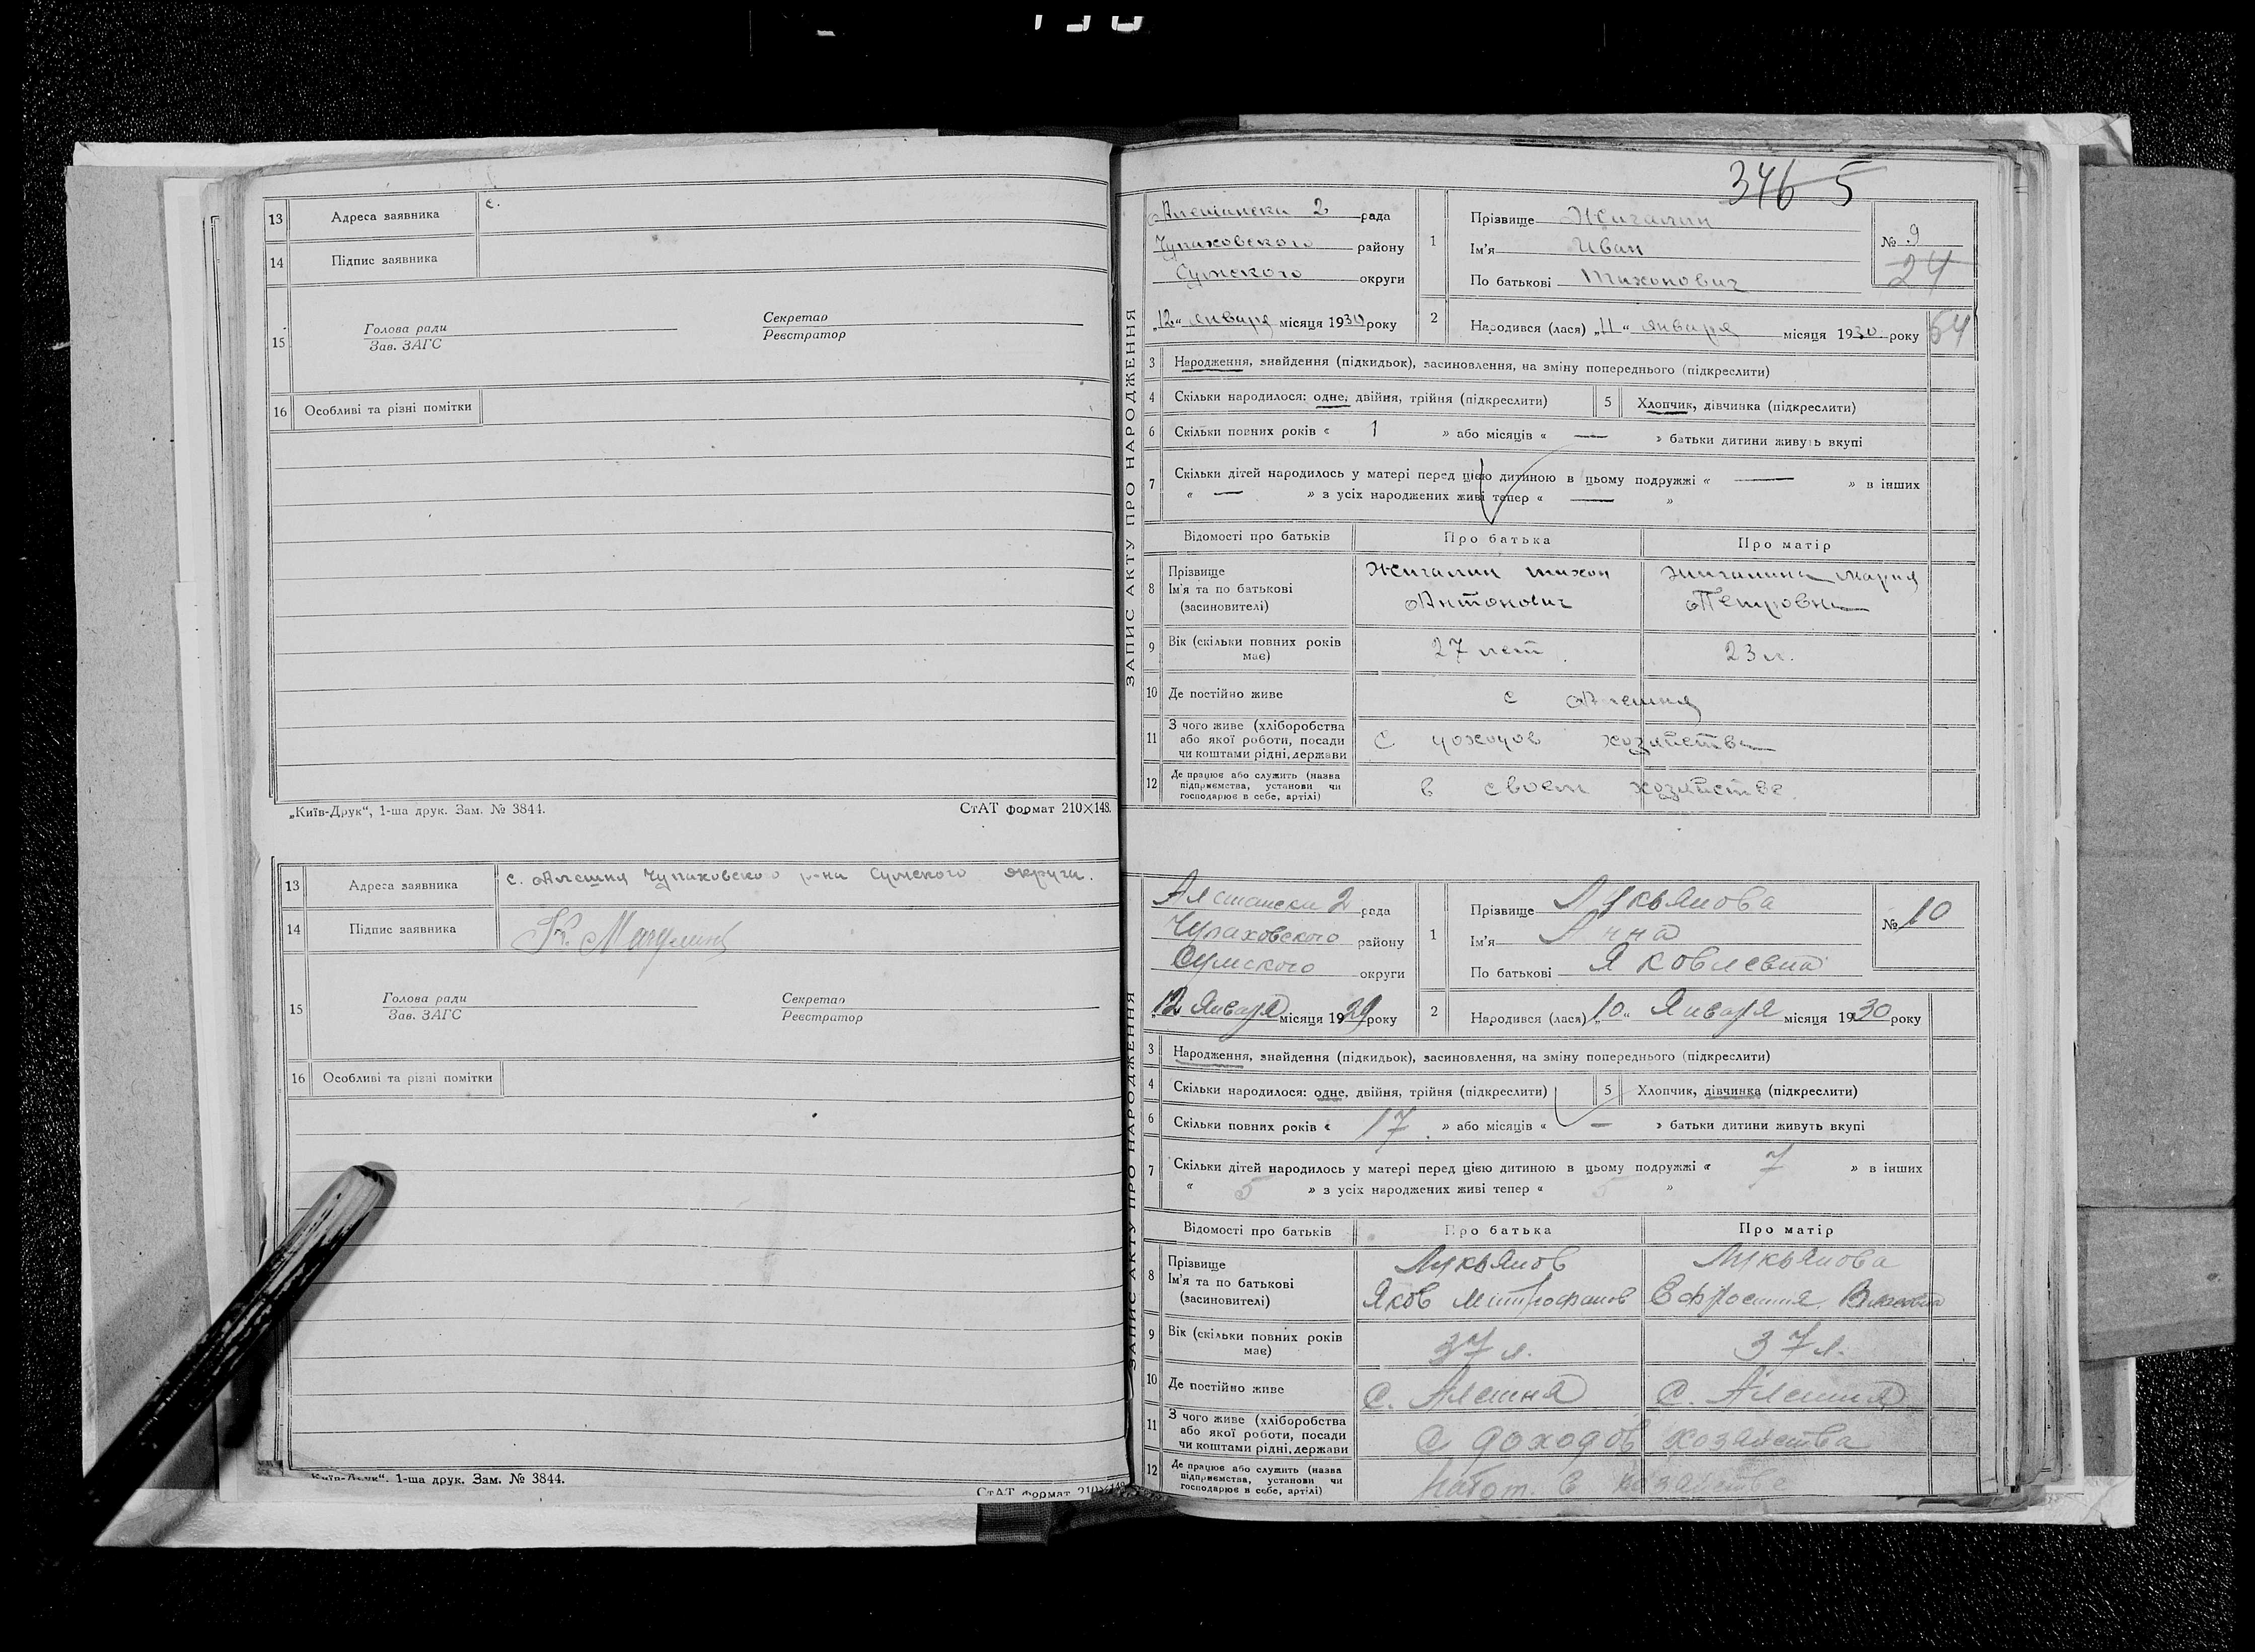 13 Адреса заявника с.
14 Підпис заявника
15 Голова ради Секретар
Зав. ЗАГС Реєстратор
16 Особливі та різні помітки
„Київ-Друк“, 1-ша друк. Зам. № 3844. СтАТ формат 210×148.
13 Адреса заявника с. Алешня Чупаховского р-на Сумского округи.
14 Підпис заявника
15 Голова ради Секретар
Зав. ЗАГС Реєстратор
16 Особливі та різні помітки
„Київ-Друк“, 1-ша друк. Зам. № 3844.
СтАТ формат 210×148
346 5
ЗАПИС АКТУ ПРО НАРОДЖЕННЯ
Алешански 2 рада
Чупаховского району
Сумского округи
„12“ января місяця 1930 року
1 Прізвище Жигалин
Ім'я Иван
По батькові Тихонович
№ 9
24
2 Народився (лася) „11“ января місяця 1930 року
64
3 Народження, знайдення (підкидьок), засиновлення, на зміну попереднього (підкреслити)
4 Скільки народилося: одне, двійня, трійня (підкреслити) 5 Хлопчик, дівчинка (підкреслити)
6 Скільки повних років « 1 » або місяців « — » батьки дитини живуть вкупі
7 Скільки дітей народилось у матері перед цією дитиною в цьому подружжі « — » в інших
« — » з усіх народжених живі тепер « — »
Відомості про батьків Про батька Про матір
8 Прізвище Ім'я та по батькові (засиновителі)
Жигалин тихон Антонович
Жигалина Мария Петровна
9 Вік (скільки повних років має) 27 лет 23 л.
10 Де постійно живе с Алешня
11 З чого живе (хліборобства або якої роботи, посади чи коштами рідні, держави С доходов хозяйства
12 Де працює або служить (назва підприємства, установи чи господарює в себе, артілі) в своем хозяйстве.
ЗАПИС АКТУ ПРО НАРОДЖЕННЯ
Алешански 2 рада
Чупаховского району
Сумского округи
„12 Января місяця 1929 року
1 Прізвище Лукьянова
Ім'я Анна
По батькові Яковлевна
№ 10
2 Народився (лася) „10“ Января місяця 1930 року
3 Народження, знайдення (підкидьок), засиновлення, на зміну попереднього (підкреслити)
4 Скільки народилося: одне, двійня, трійня (підкреслити) 5 Хлопчик, дівчинка (підкреслити)
6 Скільки повних років « 17 » або місяців « — » батьки дитини живуть вкупі
7 Скільки дітей народилось у матері перед цією дитиною в цьому подружжі « 7 » в інших
« 5 » з усіх народжених живі тепер « 5 »
Відомості про батьків Про батька Про матір
8 Прізвище Ім'я та по батькові (засиновителі)
Лукьянов Яков Митрофанов
Лукьянова Ефросиния
9 Вік (скільки повних років має) 37 л. 37 л.
10 Де постійно живе С. Алешня С. Алешня
11 З чого живе (хліборобства або якої роботи, посади чи коштами рідні, держави С доходов хозяйства
12 Де працює або служить (назва підприємства, установи чи господарює в себе, артілі) Работ. в хозяйстве